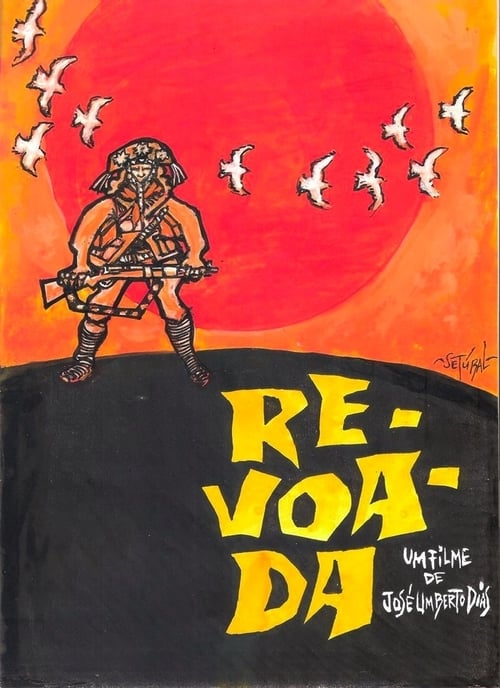 SETÚBAL
RE-
VOA-
DA
UM FILME
DE
JOSÉ UMBERTO DIAS